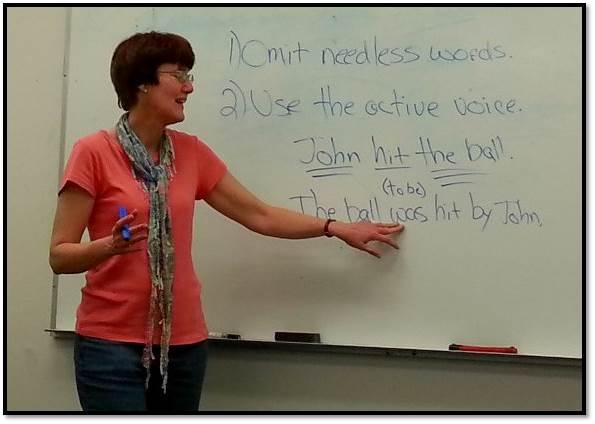 1) Omit needless words.
2) Use the active voice.
John hit the ball.
(to be)
The ball was hit by John.